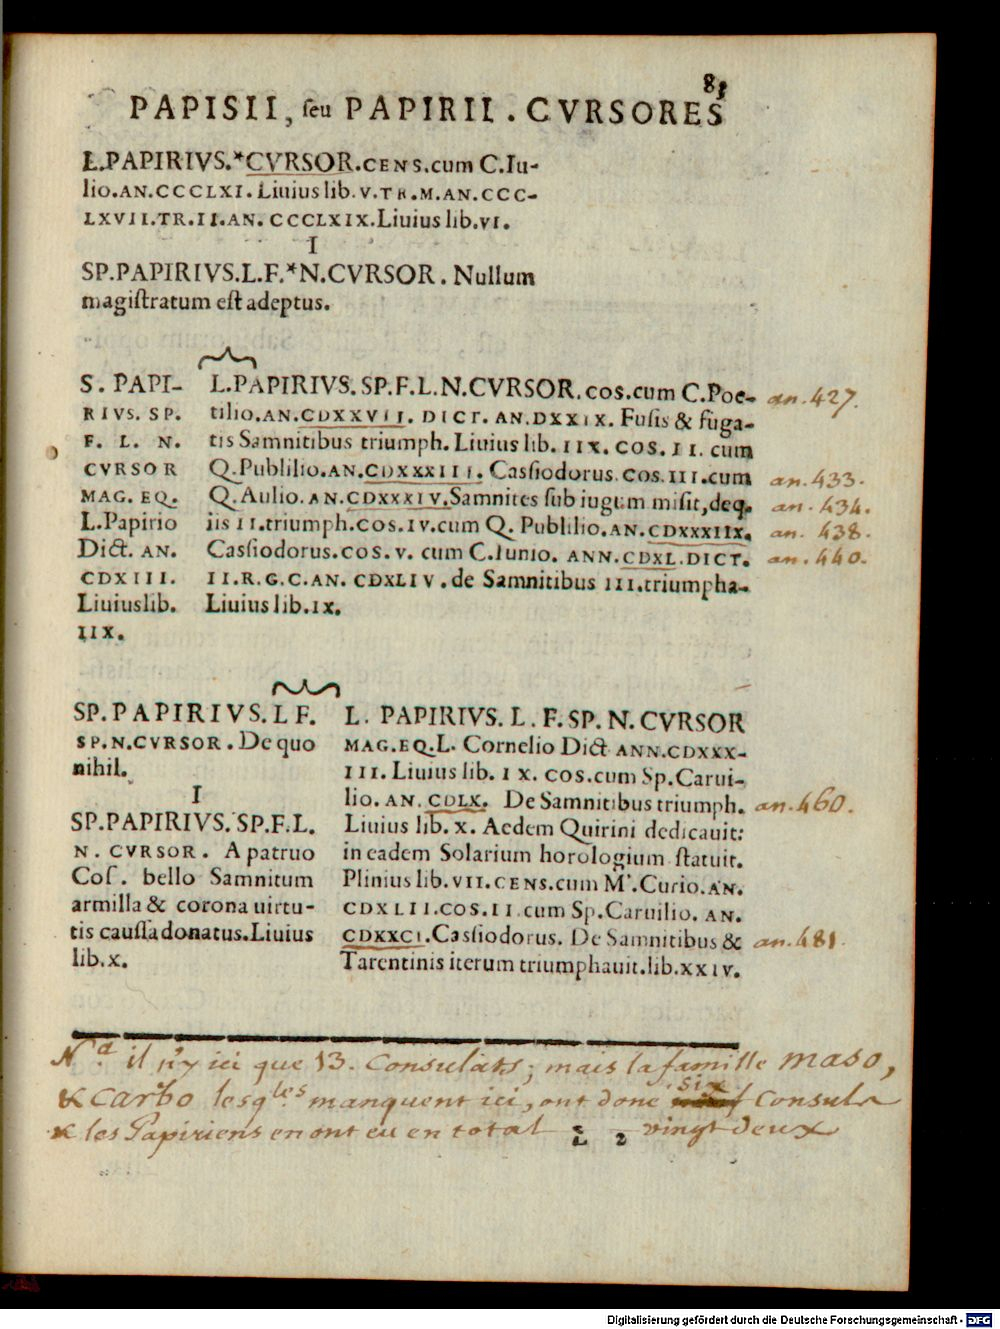 81
PAPISII, seu PAPIRII. CVRSORES
L.PAPIRIVS.*CVRSOR.CENS.cum C.Iu-
lio.AN.CCCLXI. Liuius lib. V.TR.M.AN.CCC-
LXVII.TR.II.AN.CCCLXIX.Liuius lib.VI.
I
SP.PAPIRIVS.L.F.*N.CVRSOR. Nullum
magistratum est adeptus.
S. PAPI-
RIVS. SP.
F. L. N.
CVRSOR
MAG. EQ.
L.Papirio
Dict. AN.
CDXIII.
Liuius lib.
IIX.
L.PAPIRIVS. SP.F.L.N.CVRSOR. cos.cum C.Poe- an.427.
tilio.AN.CDXXVII. DICT. AN.DXXIX. Fusis & fuga-
tis Samnitibus triumph. Liuius lib. IIX. COS. II. cum
Q.Publilio.AN.CDXXXIII. Cassiodorus. COS.III.cum an.433.
Q.Aulio.AN.CDXXXIV.Samnites sub iugum misit, deq. an.434.
iis II.triumph.COS.IV.cum Q. Publilio.AN.CDXXXIIX. an. 438.
Cassiodorus.COS.V. cum C.Iunio. ANN.CDXL.DICT. an.440.
II.R.G.C.AN. CDXLIV. de Samnitibus III.triumpha-
Liuius lib.IX.
SP.PAPIRIVS.L F.
SP.N.CVRSOR. De quo
nihil.
I
SP.PAPIRIVS. SP.F.L.
N. CVRSOR. A patruo
Cos. bello Samnitum
armilla & corona uirtu-
tis caussa donatus.Liuius
lib.X.
L. PAPIRIVS. L. F. SP. N. CVRSOR
MAG.EQ.L. Cornelio Dict ANN.CDXXX-
III. Liuius lib. IX. COS.cum Sp.Carui-
lio. AN. CDLX. De Samnitibus triumph. an.460.
Liuius lib. X. Aedem Quirini dedicauit:
in eadem Solarium horologium statuit.
Plinius lib. VII.CENS.cum M'.Curio.AN.
CDXLII.COS.II cum Sp.Caruilio. AN.
CDXXCI.Cassiodorus. De Samnitibus & an.481.
Tarentinis iterum triumphauit.lib.XXIV.
Na il n'y ici que 13. Consulats; mais la famille maso,
& Carbo lesqles manquent ici, ont donc six Consula
& les Papiriens en ont eu en total vingt deux
Digitalisierung gefördert durch die Deutsche Forschungsgemeinschaft - DFG